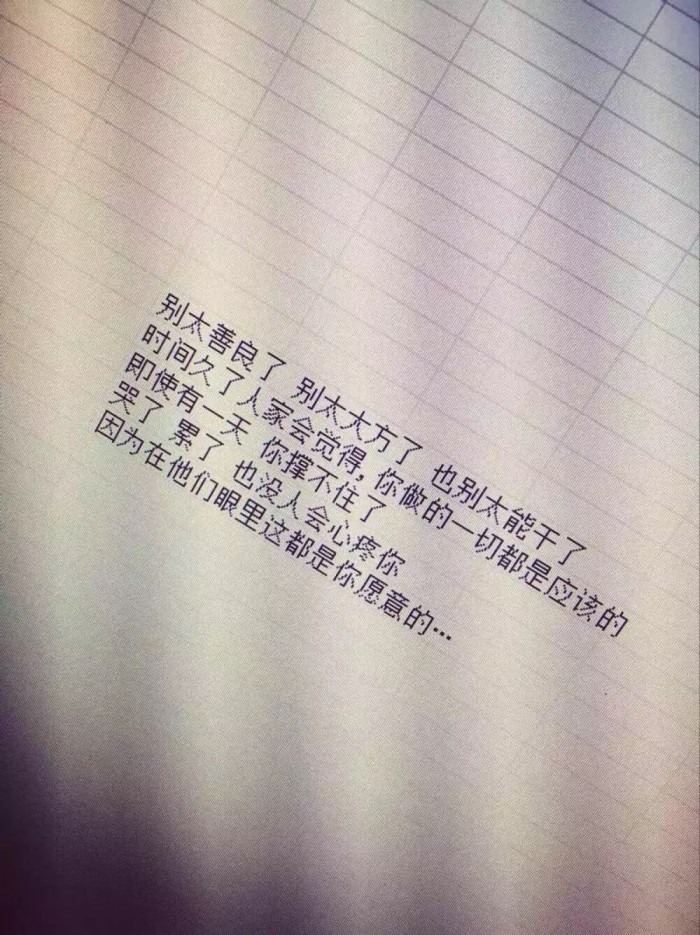 别太善良了 别太大方了 也别太能干了
时间久了人家会觉得,你做的一切都是应该的
即使有一天 你撑不住了
哭了 累了 也没人会心疼你
因为在他们眼里这都是你愿意的…